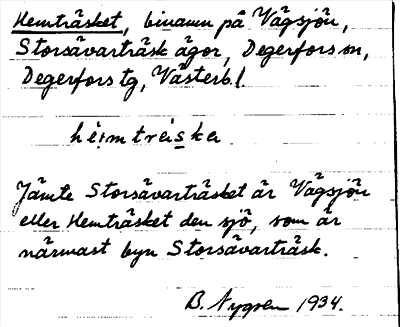 Hemträsket, binamn på Vägsjön,
Storsävarträsk ägor, Degerfors sn,
Degerfors tg, Västerb. l.
heimtreiska
Jämte Storsävarträsket är Vägsjön
eller Hemträsket den sjö, som är
närmast byn Storsävarträsk.
B. Nygren 1934.